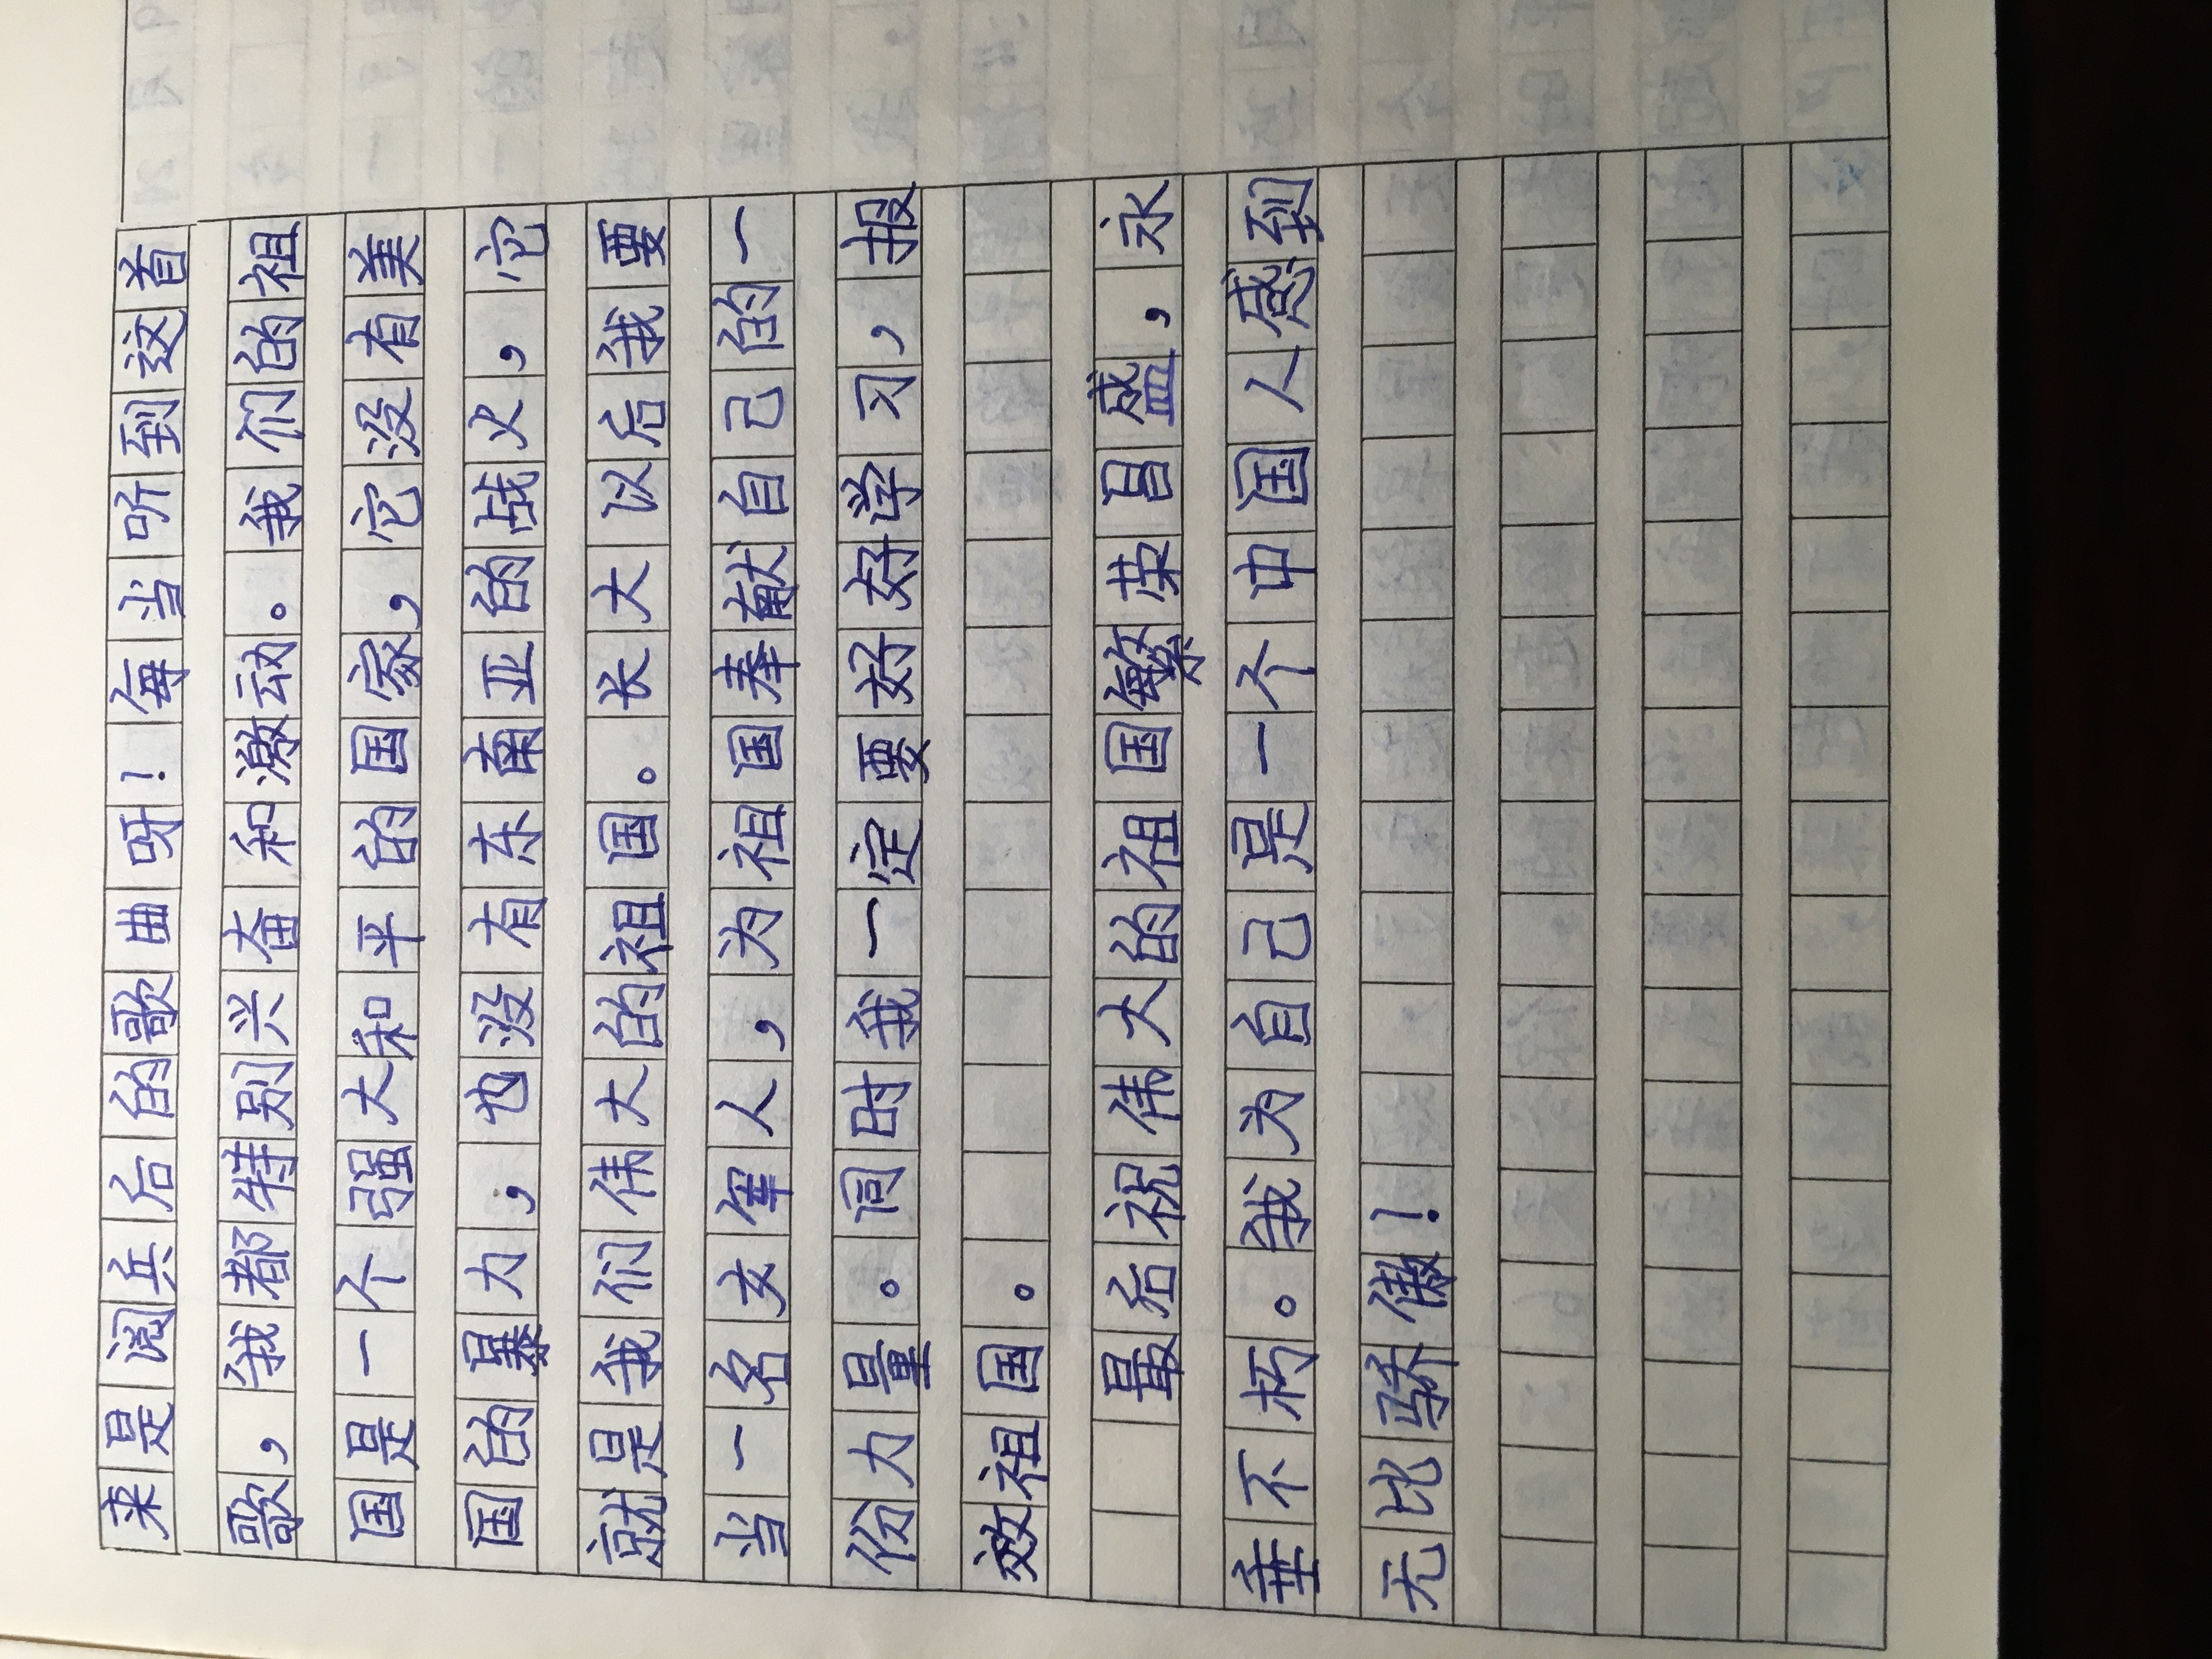 来是阅兵后的歌曲呀！每当听到这首
歌，我都特别兴奋和激动。我们的祖
国是一个强大和平的国家，它没有美
国的暴力，也没有东南亚的战火，它
就是我们伟大的祖国。长大以后我要
当一名女军人，为祖国奉献自己的一
份力量。同时我一定要好好学习，报
效祖国。
最后祝伟大的祖国繁荣昌盛，永
垂不朽。我为自己是一个中国人感到
无比骄傲！